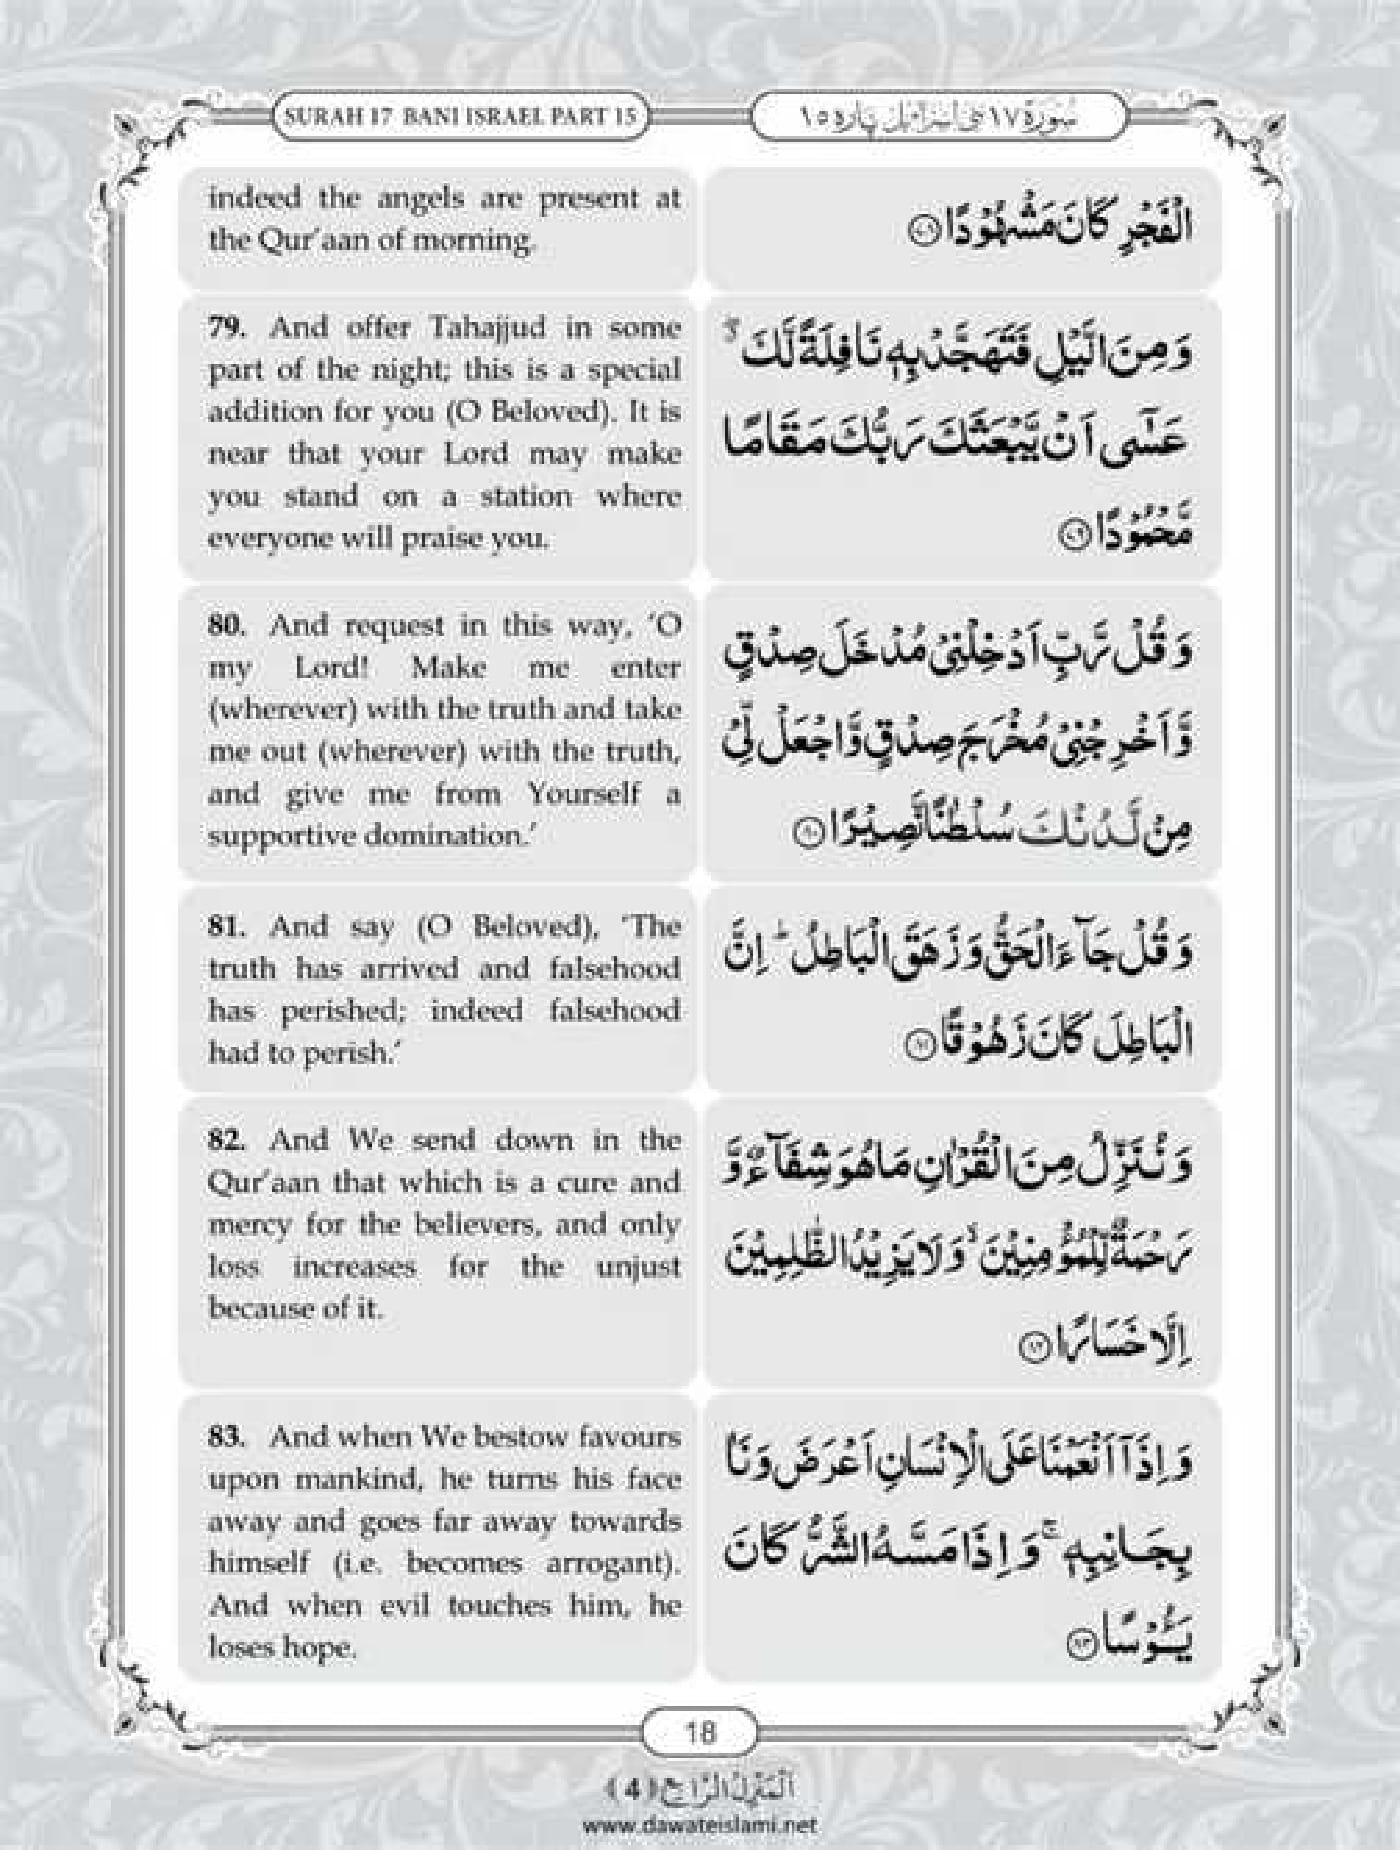 SURAH 17 BANI ISRAEL PART 15
سُورَة ١٧ بنی اسرائیل پاره ١٥
indeed the angels are present at
the Qur'aan of morning.
الْفَجْرِ كَانَ مَشْهُوْدًا ﴿۷۸﴾
79. And offer Tahajjud in some
part of the night; this is a special
addition for you (O Beloved). It is
near that your Lord may make
you stand on a station where
everyone will praise you.
وَ مِنَ الَّیْلِ فَتَهَجَّدْ بِهٖ نَافِلَةً لَّكَ ۖۗ
عَسٰۤی اَنْ یَّبْعَثَكَ رَبُّكَ مَقَامًا
مَّحْمُوْدًا ﴿۷۹﴾
80. And request in this way, ‘O
my Lord! Make me enter
(wherever) with the truth and take
me out (wherever) with the truth,
and give me from Yourself a
supportive domination.’
وَ قُلْ رَّبِّ اَدْخِلْنِیْ مُدْخَلَ صِدْقٍ
وَّ اَخْرِجْنِیْ مُخْرَجَ صِدْقٍ وَّ اجْعَلْ لِّیْ
مِنْ لَّدُنْكَ سُلْطٰنًا نَّصِیْرًا ﴿۸۰﴾
81. And say (O Beloved), ‘The
truth has arrived and falsehood
has perished; indeed falsehood
had to perish.’
وَ قُلْ جَآءَ الْحَقُّ وَ زَهَقَ الْبَاطِلُ ؕ اِنَّ
الْبَاطِلَ كَانَ زَهُوْقًا ﴿۸۱﴾
82. And We send down in the
Qur'aan that which is a cure and
mercy for the believers, and only
loss increases for the unjust
because of it.
وَ نُنَزِّلُ مِنَ الْقُرْاٰنِ مَا هُوَ شِفَآءٌ وَّ
رَحْمَةٌ لِّلْمُؤْمِنِیْنَ ۙ وَ لَا یَزِیْدُ الظّٰلِمِیْنَ
اِلَّا خَسَارًا ﴿۸۲﴾
83. And when We bestow favours
upon mankind, he turns his face
away and goes far away towards
himself (i.e. becomes arrogant).
And when evil touches him, he
loses hope.
وَ اِذَاۤ اَنْعَمْنَا عَلَی الْاِنْسَانِ اَعْرَضَ وَ نَاٰ
بِجَانِبِهٖ ۚ وَ اِذَا مَسَّهُ الشَّرُّ كَانَ
یَـُٔوْسًا ﴿۸۳﴾
18
اَلْمَنْزِلُ الرَّابِع ﴿4﴾
www.dawateislami.net